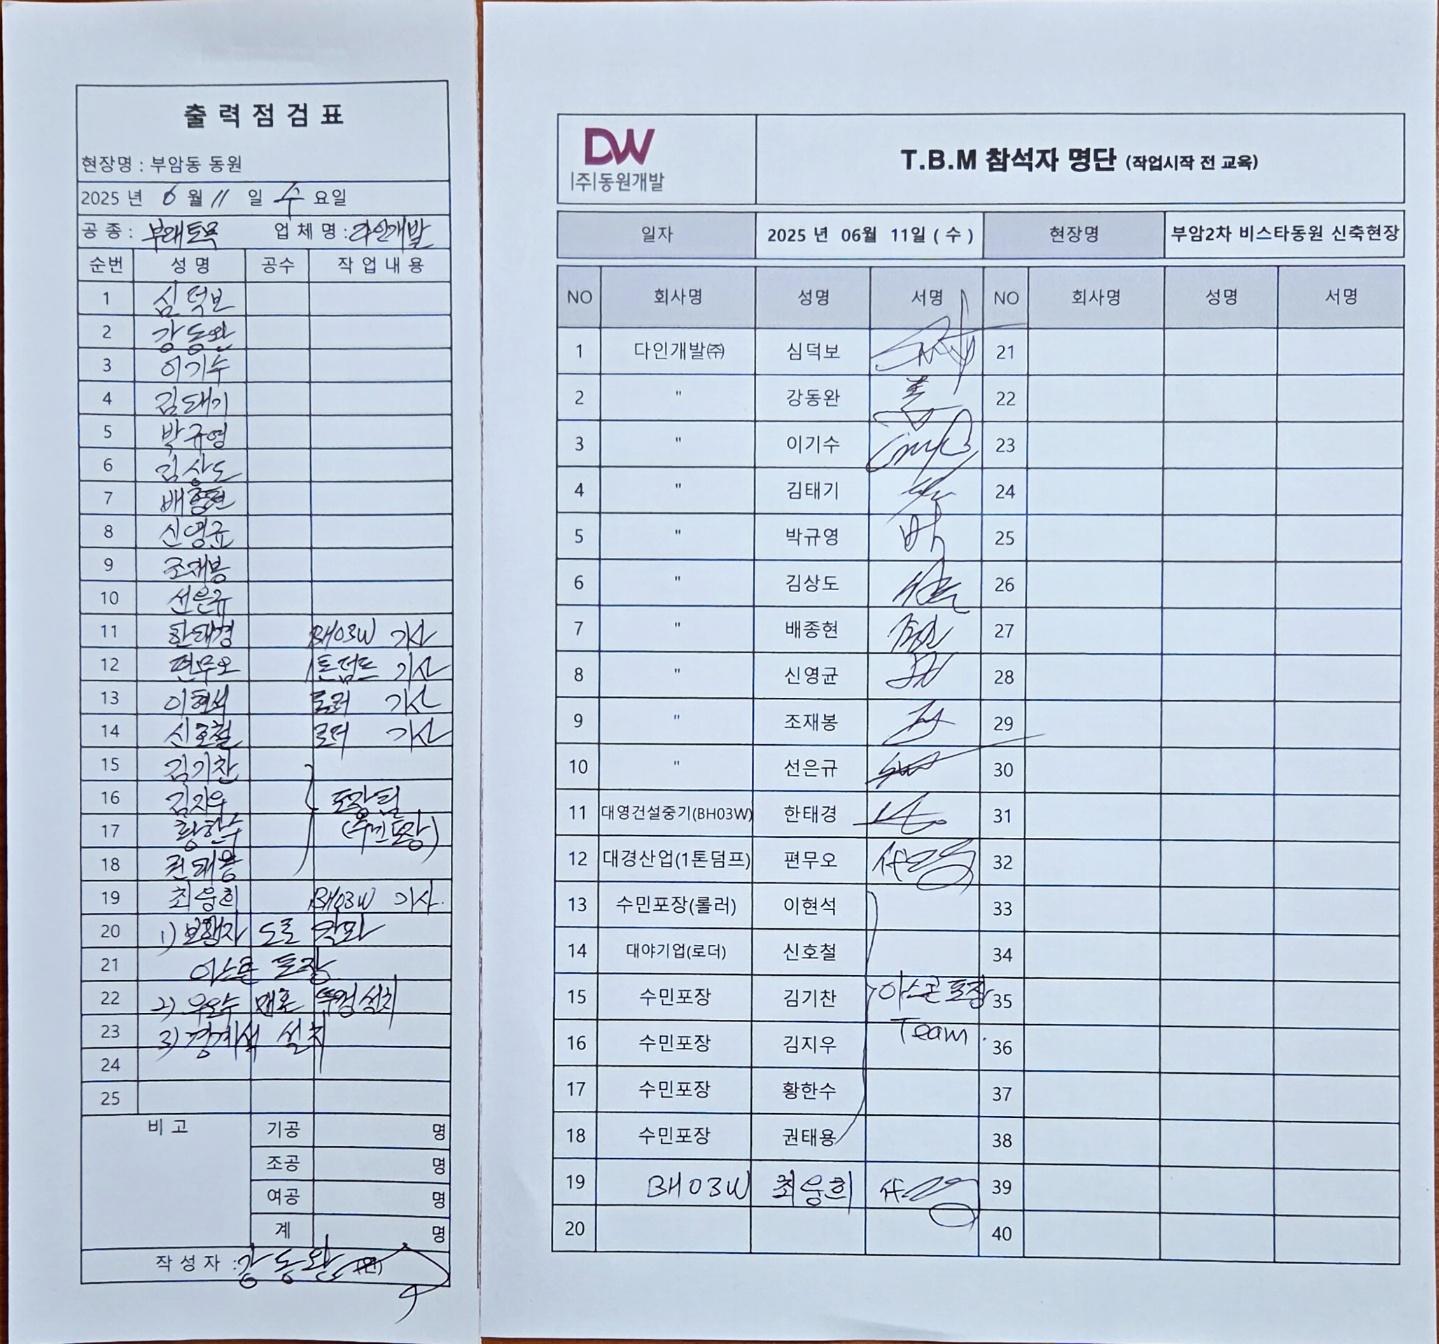 출력점검표
현장명 : 부암동 동원
2025 년 6 월 11 일 수 요일
공 종 : 부대토목 업 체 명 : 다인개발
순번 성 명 공수 작 업 내 용
1 심덕보
2 강동완
3 이기수
4 김태기
5 박규영
6 김상도
7 배종현
8 신영균
9 조재봉
10 선은규
11 한태경 BH03W 기사
12 편무오 1톤덤프 기사
13 이현석 롤러 기사
14 신호철 로더 기사
15 김기찬
16 김지우 포장팀
17 황한수 (수민포장)
18 권태용
19 최웅희 BH03W 기사.
20 1) 보행자 도로
21 아스콘 포장
22 2) 우오수 맨홀 뚜껑 설치
23 3) 경계석 설치
24
25
비 고
기공 명
조공 명
여공 명
계 명
작 성 자 : 강동완 (인)
DW
(주)동원개발
T.B.M 참석자 명단 (작업시작 전 교육)
일자 2025 년 06월 11일 ( 수 ) 현장명 부암2차 비스타동원 신축현장
NO 회사명 성명 서명 NO 회사명 성명 서명
1 다인개발㈜ 심덕보 21
2 " 강동완 22
3 " 이기수 23
4 " 김태기 24
5 " 박규영 박 25
6 " 김상도 26
7 " 배종현 27
8 " 신영균 28
9 " 조재봉 29
10 " 선은규 30
11 대영건설중기(BH03W) 한태경 31
12 대경산업(1톤덤프) 편무오 32
13 수민포장(롤러) 이현석 33
14 대야기업(로더) 신호철 34
15 수민포장 김기찬 아스콘 포장 35
16 수민포장 김지우 Team. 36
17 수민포장 황한수 37
18 수민포장 권태용 38
19 BH03W 최웅희 39
20 40